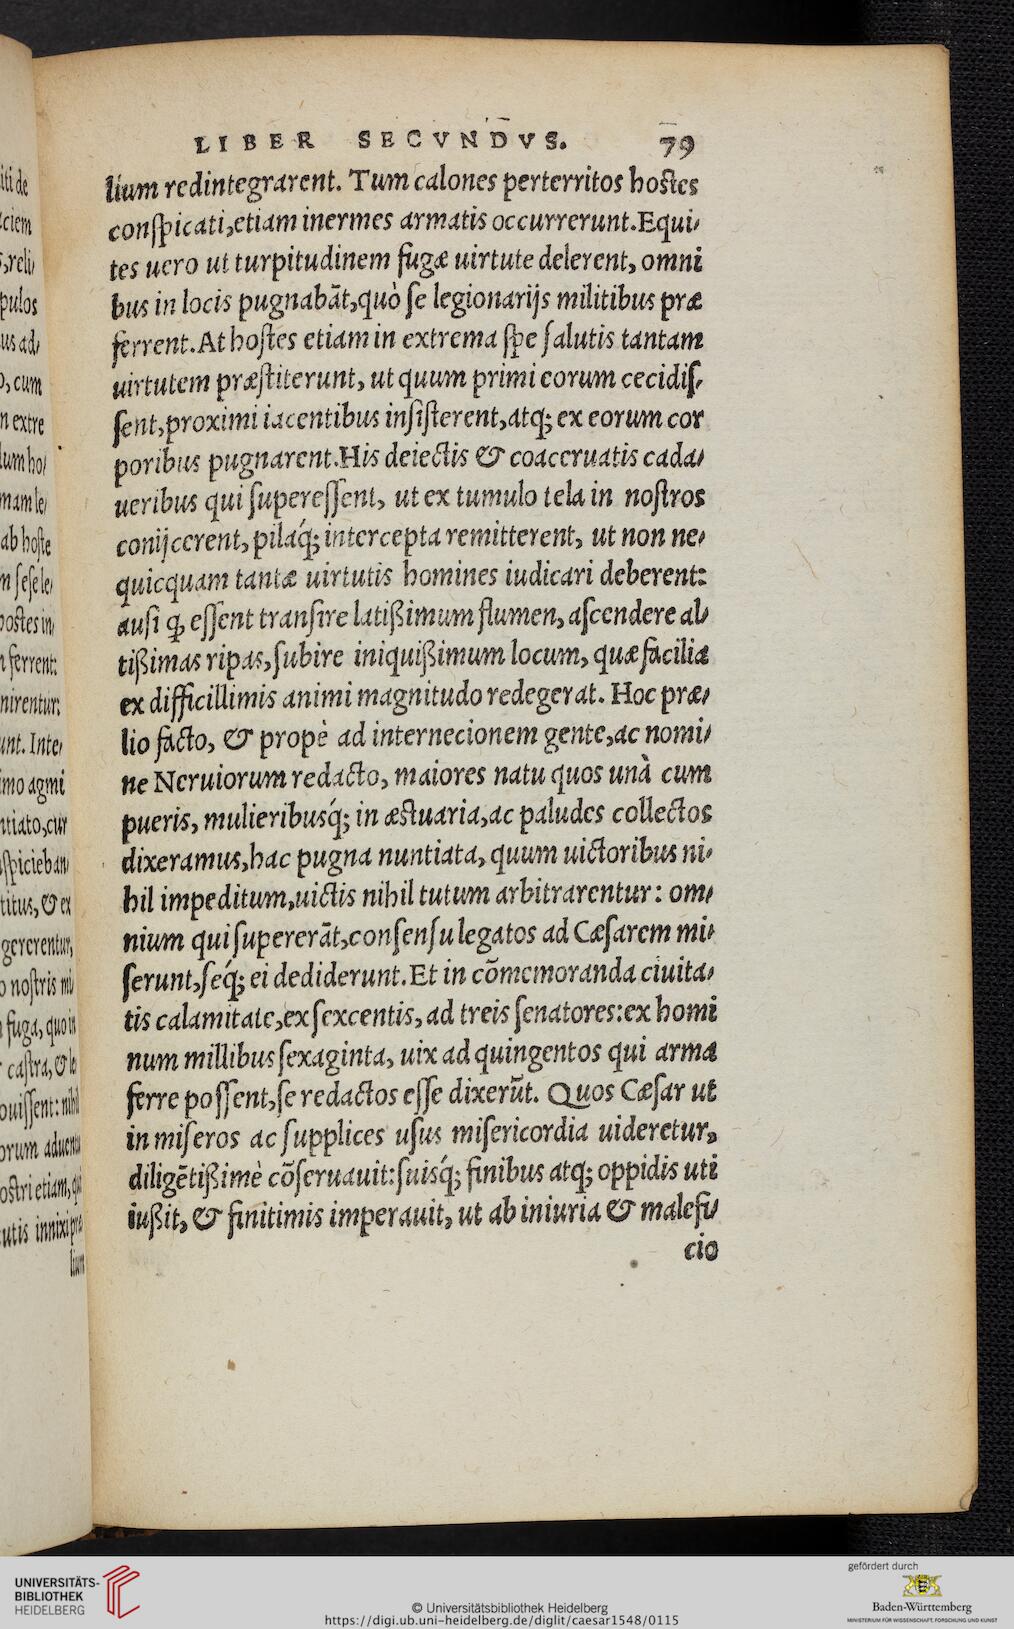 LIBER SECVNDVS. 79
lium redintegrarent. Tum calones perterritos hostes
conſpicati,etiam inermes armatis occurrerunt.Equi/
tes uero ut turpitudinem fugæ uirtute delerent, omni
bus in locis pugnabāt,quò ſe legionarijs militibus præ
ferrent.At hoſtes etiam in extrema ſpe ſalutis tantam
uirtutem præſtiterunt, ut quum primi eorum cecidiſ/
ſent,proximi iacentibus inſiſterent,atq; ex eorum cor
poribus pugnarent.His deiectis & coaceruatis cada/
ueribus qui ſupereſſent, ut ex tumulo tela in noſtros
conijcerent, pilaq́; intercepta remitterent, ut non ne/
quicquam tantæ uirtutis homines iudicari deberent:
auſi q̃ eſſent tranſire latißimum flumen, aſcendere al/
tißimas ripas,ſubire iniquißimum locum, quæ facilia
ex difficillimis animi magnitudo redegerat. Hoc præ/
lio facto, & propè ad internecionem gente,ac nomi/
ne Neruiorum redacto, maiores natu quos unà cum
pueris, mulieribusq́; in æstuaria,ac paludes collectos
dixeramus,hac pugna nuntiata, quum uictoribus ni/
hil impeditum,uictis nihil tutum arbitrarentur: om/
nium qui ſupererāt,conſenſu legatos ad Cæſarem mi/
ſerunt,ſeq́; ei dediderunt.Et in cōmemoranda ciuita/
tis calamitate,ex ſexcentis, ad treis ſenatores:ex homi
num millibus ſexaginta, uix ad quingentos qui arma
ferre poſſent,ſe redactos eſſe dixerūt. Quos Cæſar ut
in miſeros ac ſupplices uſus miſericordia uideretur,
diligētißimè cōſeruauit:ſuisq́; finibus atq; oppidis uti
iußit, & finitimis imperauit, ut ab iniuria & malefi/
cio
iti de
ciem
,reli/
pulos
us ad/
, cum
n extre
lum ho/
mam le/
ab hoſte
m ſeſe le/
hostes in/
ferrent:
nirentur:
unt. Inte/
imo agmi
ntiato,cur
ſpicieban/
titus, & ex
gererentur,
o noſtris mi/
fuga, quo in
caſtra, & le
ouiſſent: nihil
orum aduentu
oſtri etiam, qui
utis innixi præ
lium
UNIVERSITÄTS-
BIBLIOTHEK
HEIDELBERG
© Universitätsbibliothek Heidelberg
https://digi.ub.uni-heidelberg.de/diglit/caesar1548/0115
gefördert durch
Baden-Württemberg
MINISTERIUM FÜR WISSENSCHAFT, FORSCHUNG UND KUNST